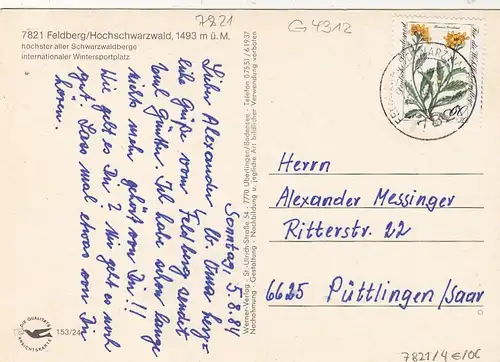 7821
G4312
7821 Feldberg/Hochschwarzwald, 1493 m ü.M.
höchster aller Schwarzwaldberge
internationaler Wintersportplatz
Sonntag, 5.8.84
Lieber Alexander!
liche Grüße vom Feldberg sendet
Günther. Ich habe schon lange
nichts mehr gehört von Dir!!
Wie geht es Dir? Mir geht es noch
gut. Lass mal etwas von Dir
hören.
Werner-Verlag · St.-Ulrich-Straße 54 · 7770 Überlingen/Bodensee · Telefon 0 75 51 / 6 19 37
Nachahmung · Gestaltung · Nachbildung u. jegliche Art bildlicher Verwendung verboten
Herrn
Alexander Messinger
Ritterstr. 22
6625 Püttlingen/Saar
DIE QUALITÄTS
ANSICHTSKARTE
7821/4€/OG